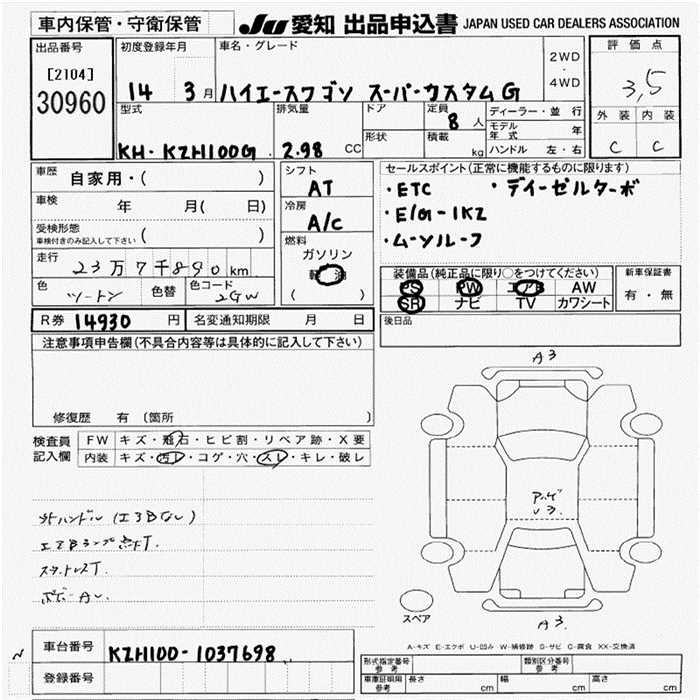 車内保管・守衛保管
JU 愛知 出品申込書 JAPAN USED CAR DEALERS ASSOCIATION
出品番号
[2104]
30960
初度登録年月
14 3 月
車名・グレード
ハイエースワゴン スーパーカスタムG
2WD
・
4WD
評価点
3,5
外装 内装
C C
型式
KH-KZH100G
排気量
2.98 CC
ドア
形状
定員
8 人
積載
kg
ディーラー・並 行
モデル年式 年
ハンドル 左・右
車歴
自家用・( )
車検
年 月( 日)
受検形態
車検付きのみ記入して下さい ( )
走行
23万7千890 km
色
ツートン
色替
色コード
2GW
シフト
AT
冷房
A/C
燃料
ガソリン
軽 油
( )
セールスポイント(正常に機能するものに限ります)
・ETC ・ディーゼルターボ
・E/G-1KZ
・ムーンルーフ
装備品(純正品に限り○をつけてください)
PS PW エアB AW
SR ナビ TV カワシート
新車保証書
有・無
R券 14930 円 名変通知期限 月 日
後日品
注意事項申告欄(不具合内容等は具体的に記入して下さい)
修復歴 有 〔箇所 〕
検査員
記入欄
FW キズ・飛石・ヒビ割・リペア跡・X要
内装 キズ・汚レ・コゲ・穴・スレ・キレ・破レ
社外ハンドル (エアBなし)
エアBランプ点灯.
A3
スペア
A3
A-キズ E-エクボ U-凹み W-補修跡 S-サビ C-腐食 XX-交換済
車台番号 KZH100-1037698
登録番号
形式指定番号
参考
類別区分番号
参考
車庫証明用
参考
長さ cm 幅 cm 高さ cm